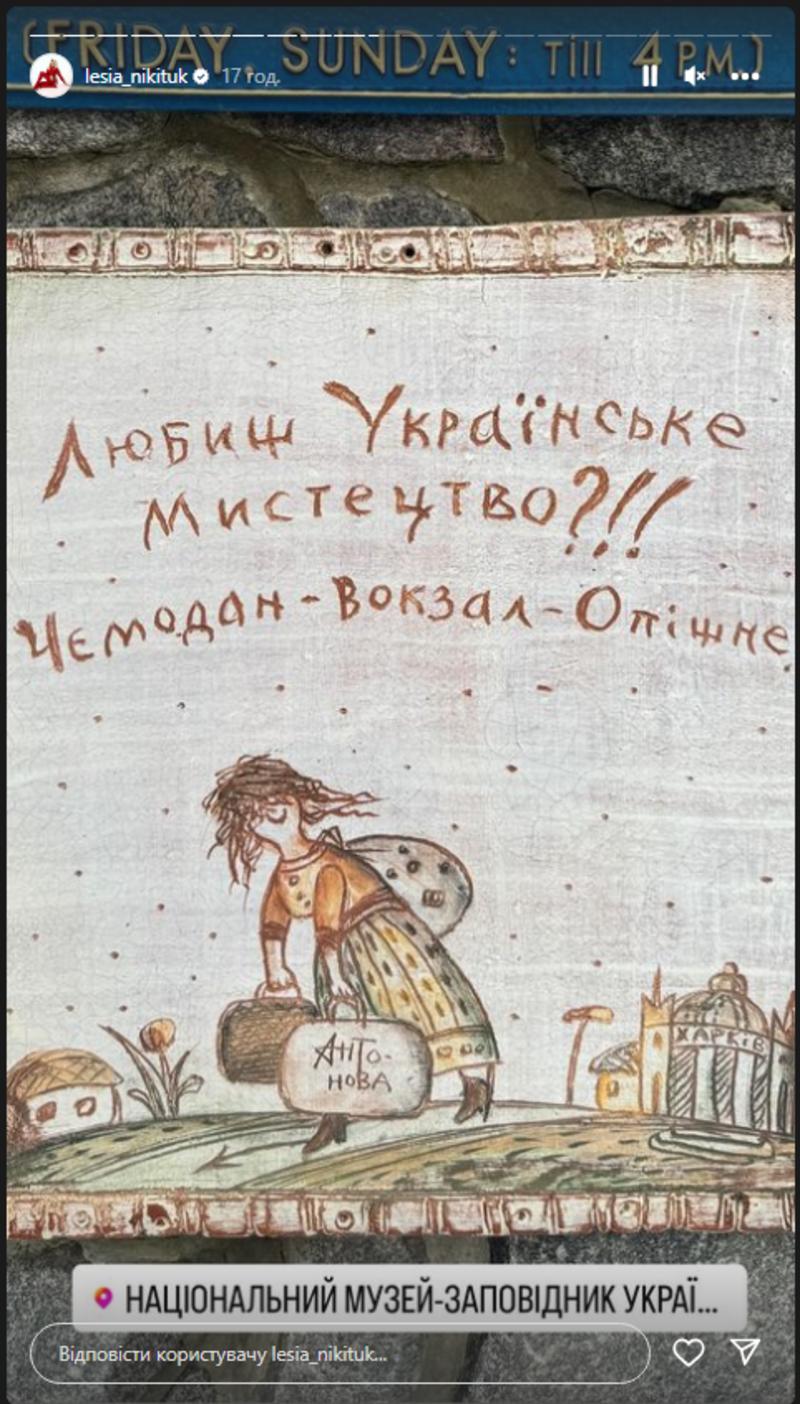 (FRIDAY, SUNDAY: TILL 4 P.M.)
lesia_nikituk 17 год.
Любиш Українське
Мистецтво?!!
Чемодан-Вокзал-Опішне
АНТО-
НОВА
ХАРКІВ
НАЦІОНАЛЬНИЙ МУЗЕЙ-ЗАПОВІДНИК УКРАЇ...
Відповісти користувачу lesia_nikituk...